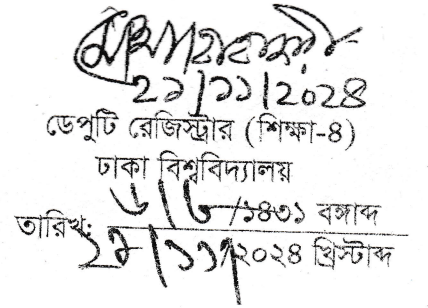 ২১/১১/২০২৪
ডেপুটি রেজিস্ট্রার (শিক্ষা-৪)
ঢাকা বিশ্ববিদ্যালয়
তারিখ: ৬/৮/১৪৩১ বঙ্গাব্দ
২১/১১/২০২৪ খ্রিস্টাব্দ